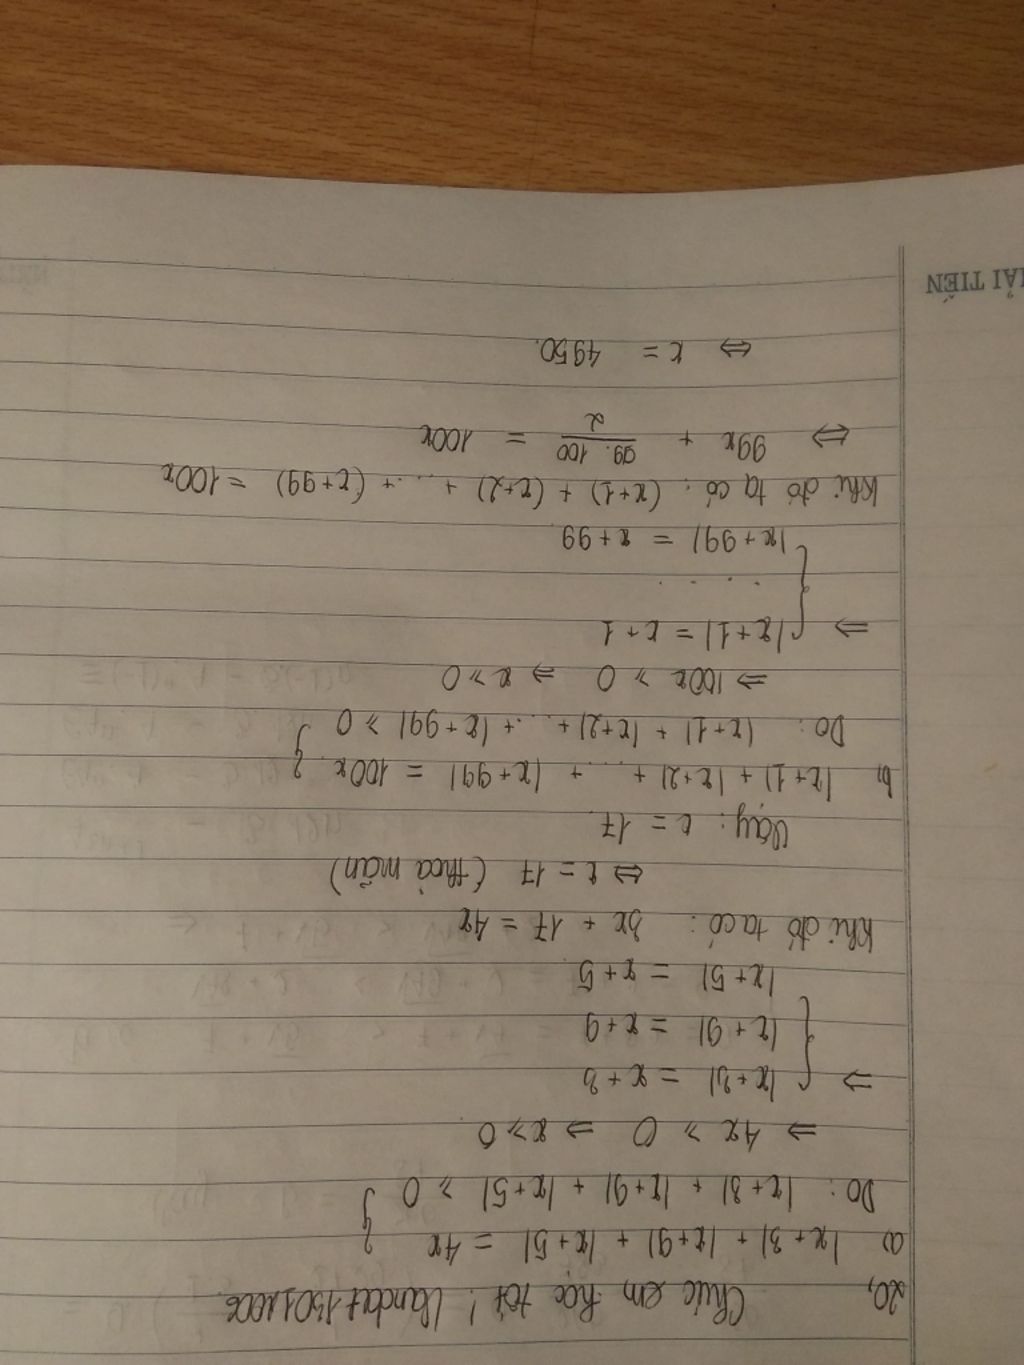 20, Chúc em học tốt!
a) |x+3| + |x+9| + |x+5| = 4x }
Do: |x+3| + |x+9| + |x+5| ⩾ 0
⇒ 4x ⩾ 0 ⇒ x ⩾ 0
⇒ { |x+3| = x+3
|x+9| = x+9
|x+5| = x+5
Khi đó ta có: 3x + 17 = 4x
⇔ x = 17 (thoả mãn)
Vậy: x = 17
b, |x+1| + |x+2| + ... + |x+99| = 100x }
Do: |x+1| + |x+2| + ... + |x+99| ⩾ 0
⇒ 100x ⩾ 0 ⇒ x ⩾ 0
⇒ { |x+1| = x+1
....
|x+99| = x+99
Khi đó ta có: (x+1) + (x+2) + ... + (x+99) = 100x
⇔ 99x + 99.100/2 = 100x
⇔ x = 4950.
HẢI TIẾN